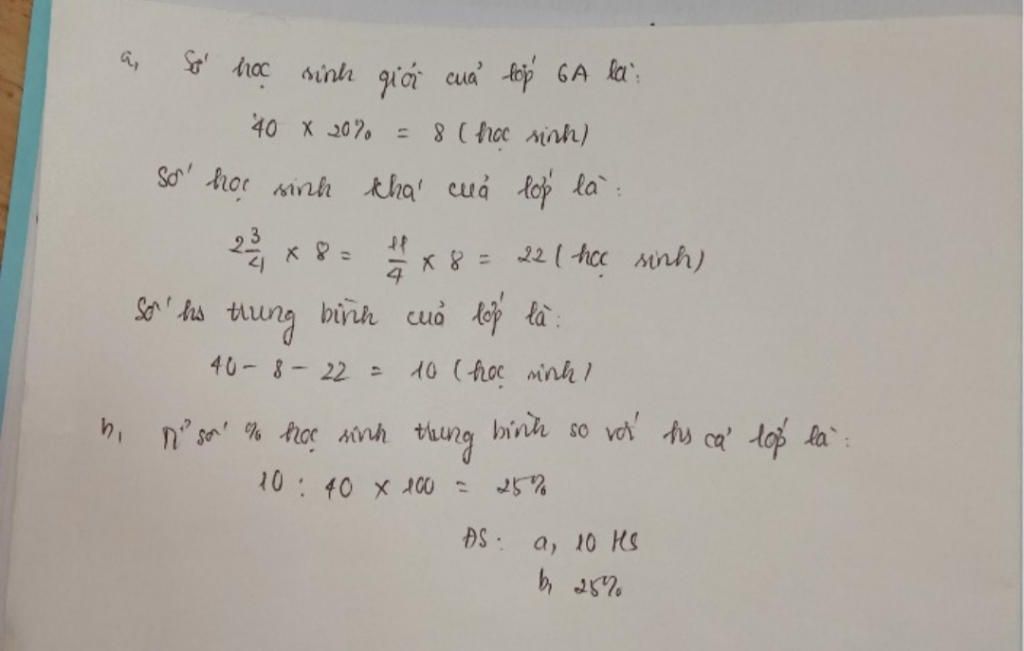 a, Số học sinh giỏi của lớp 6A là:
40 x 20% = 8 (học sinh)
Số học sinh khá của lớp là:
2 3/4 x 8 = 11/4 x 8 = 22 (học sinh)
Số hs trung bình của lớp là:
40 - 8 - 22 = 10 (học sinh)
b, Tỉ số % học sinh trung bình so với hs cả lớp là:
10 : 40 x 100 = 25%
ĐS: a, 10 HS
b, 25%